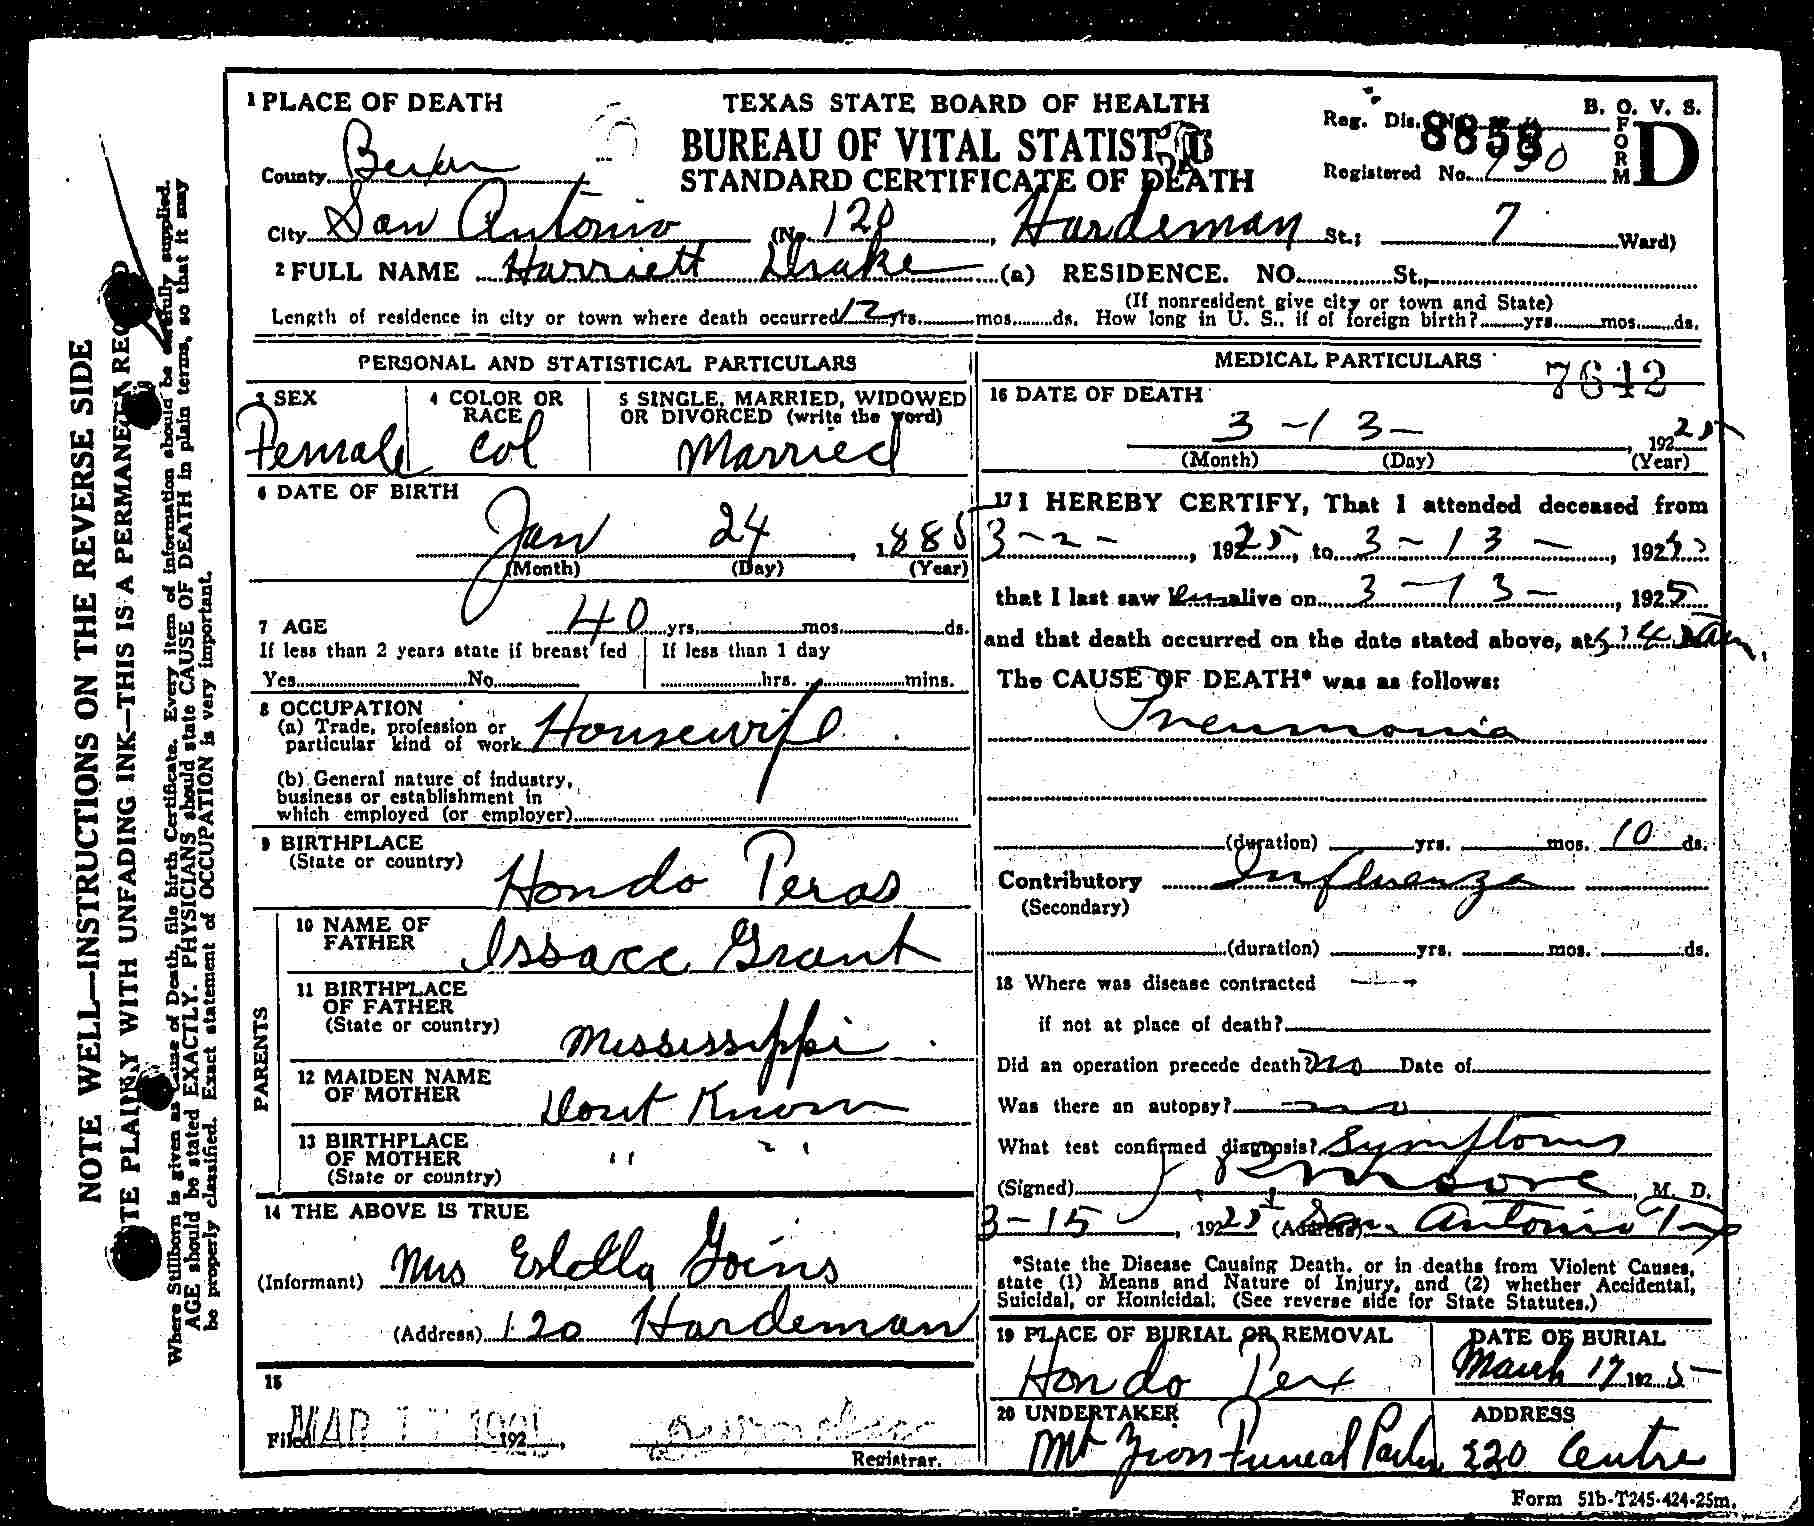 1 PLACE OF DEATH
TEXAS STATE BOARD OF HEALTH
B. O. V. S.
BUREAU OF VITAL STATISTICS
Reg. Dis. No.
8858
FORM D
County Bexar
STANDARD CERTIFICATE OF DEATH
Registered No. 790
City San Antonio (No. 120, Hardeman St.; 7 Ward)
2 FULL NAME Harriett Drake (a) RESIDENCE. NO. St.,
(If nonresident give city or town and State)
Length of residence in city or town where death occurred 12 yrs. mos. ds. How long in U. S., if of foreign birth? yrs. mos. ds.
PERSONAL AND STATISTICAL PARTICULARS
3 SEX
Female
4 COLOR OR RACE
Col
5 SINGLE, MARRIED, WIDOWED
OR DIVORCED (write the word)
Married
6 DATE OF BIRTH
Jan 24, 1885
(Month) (Day) (Year)
7 AGE 40 yrs. mos. ds.
If less than 2 years state if breast fed
Yes No
If less than 1 day
hrs. mins.
8 OCCUPATION
(a) Trade, profession or
particular kind of work Housewife
(b) General nature of industry,
business or establishment in
which employed (or employer)
9 BIRTHPLACE
(State or country)
Hondo Texas
PARENTS
10 NAME OF
FATHER
Issace Grant
11 BIRTHPLACE
OF FATHER
(State or country)
Mississippi
12 MAIDEN NAME
OF MOTHER
Dont Know
13 BIRTHPLACE
OF MOTHER
(State or country)
" "
14 THE ABOVE IS TRUE
(Informant) Mrs Estella Goins
(Address) 120 Hardeman
15
Filed MAR 17 192
Registrar.
MEDICAL PARTICULARS
7642
16 DATE OF DEATH
3-13-, 1925
(Month) (Day) (Year)
17 I HEREBY CERTIFY, That I attended deceased from
3-2-, 1925, to 3-13-, 1925
that I last saw her alive on 3-13-, 1925
and that death occurred on the date stated above, at m.
The CAUSE OF DEATH* was as follows:
Pneumonia
(duration) yrs. mos. 10 ds.
Contributory Influenza
(Secondary)
(duration) yrs. mos. ds.
18 Where was disease contracted
if not at place of death?
Did an operation precede death? no Date of
Was there an autopsy? no
What test confirmed diagnosis? Symptoms
(Signed) Moore, M. D.
3-15, 1925 (Address) San Antonio Tex
*State the Disease Causing Death, or in deaths from Violent Causes,
state (1) Means and Nature of Injury, and (2) whether Accidental,
Suicidal, or Homicidal. (See reverse side for State Statutes.)
19 PLACE OF BURIAL OR REMOVAL
Hondo Tex
DATE OF BURIAL
March 17 1925
20 UNDERTAKER
Mt Zion Funeral Parlor
ADDRESS
220 Centre
Form 51b-T245-424-25m.
NOTE WELL—INSTRUCTIONS ON THE REVERSE SIDE
WRITE PLAINLY WITH UNFADING INK—THIS IS A PERMANENT RECORD
Where Stillborn is given as Cause of Death, file birth Certificate. Every item of information should be carefully supplied.
AGE should be stated EXACTLY. PHYSICIANS should state CAUSE OF DEATH in plain terms, so that it may
be properly classified. Exact statement of OCCUPATION is very important.